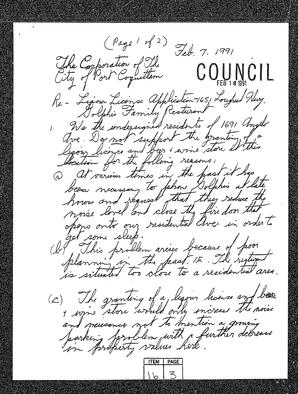 (Page 1 of 2)
Feb. 7, 1991
The Corporation of The
City of Port Coquitlam
COUNCIL
FEB 1 1991
Re - Liquor License Application - 1651 Lougheed Hwy.
Dolphis Family Restaurant
1. We the undersigned residents of 1691 Angelo
Ave. Do not support the granting of a
liquor license and beer & wine store at this
location for the following reasons:
(a) At various times in the past it has
been necessary to phone Dolphis at late
hours and request that they reduce the
noise level and close the fire door that
opens onto our residential Ave in order to
get some sleep.
(b) This problem arises because of poor
planning in the past. IE The resturant
is situated too close to a residential area.
(c) The granting of a liquor license and beer
& wine store would only increase the noise
and nuisance not to mention a growing
parking problem with a further decrease
in property values here.
ITEM PAGE
16 3